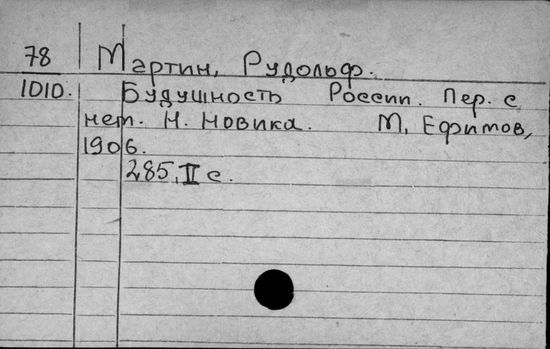 78 Мартин, Рудольф.
1010. Будушность России. Пер. с
нем. Н. Новика. М, Ефимов,
1906.
285, II с.